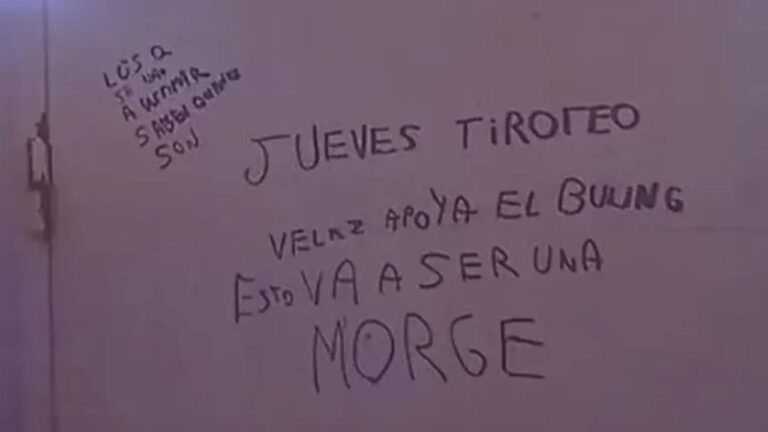 LOS Q
SE VAN
A
SABEN QUIENES
SON
JUEVES TIROTEO
VELAZ APOYA EL BULING
ESTO VA A SER UNA
MORGE